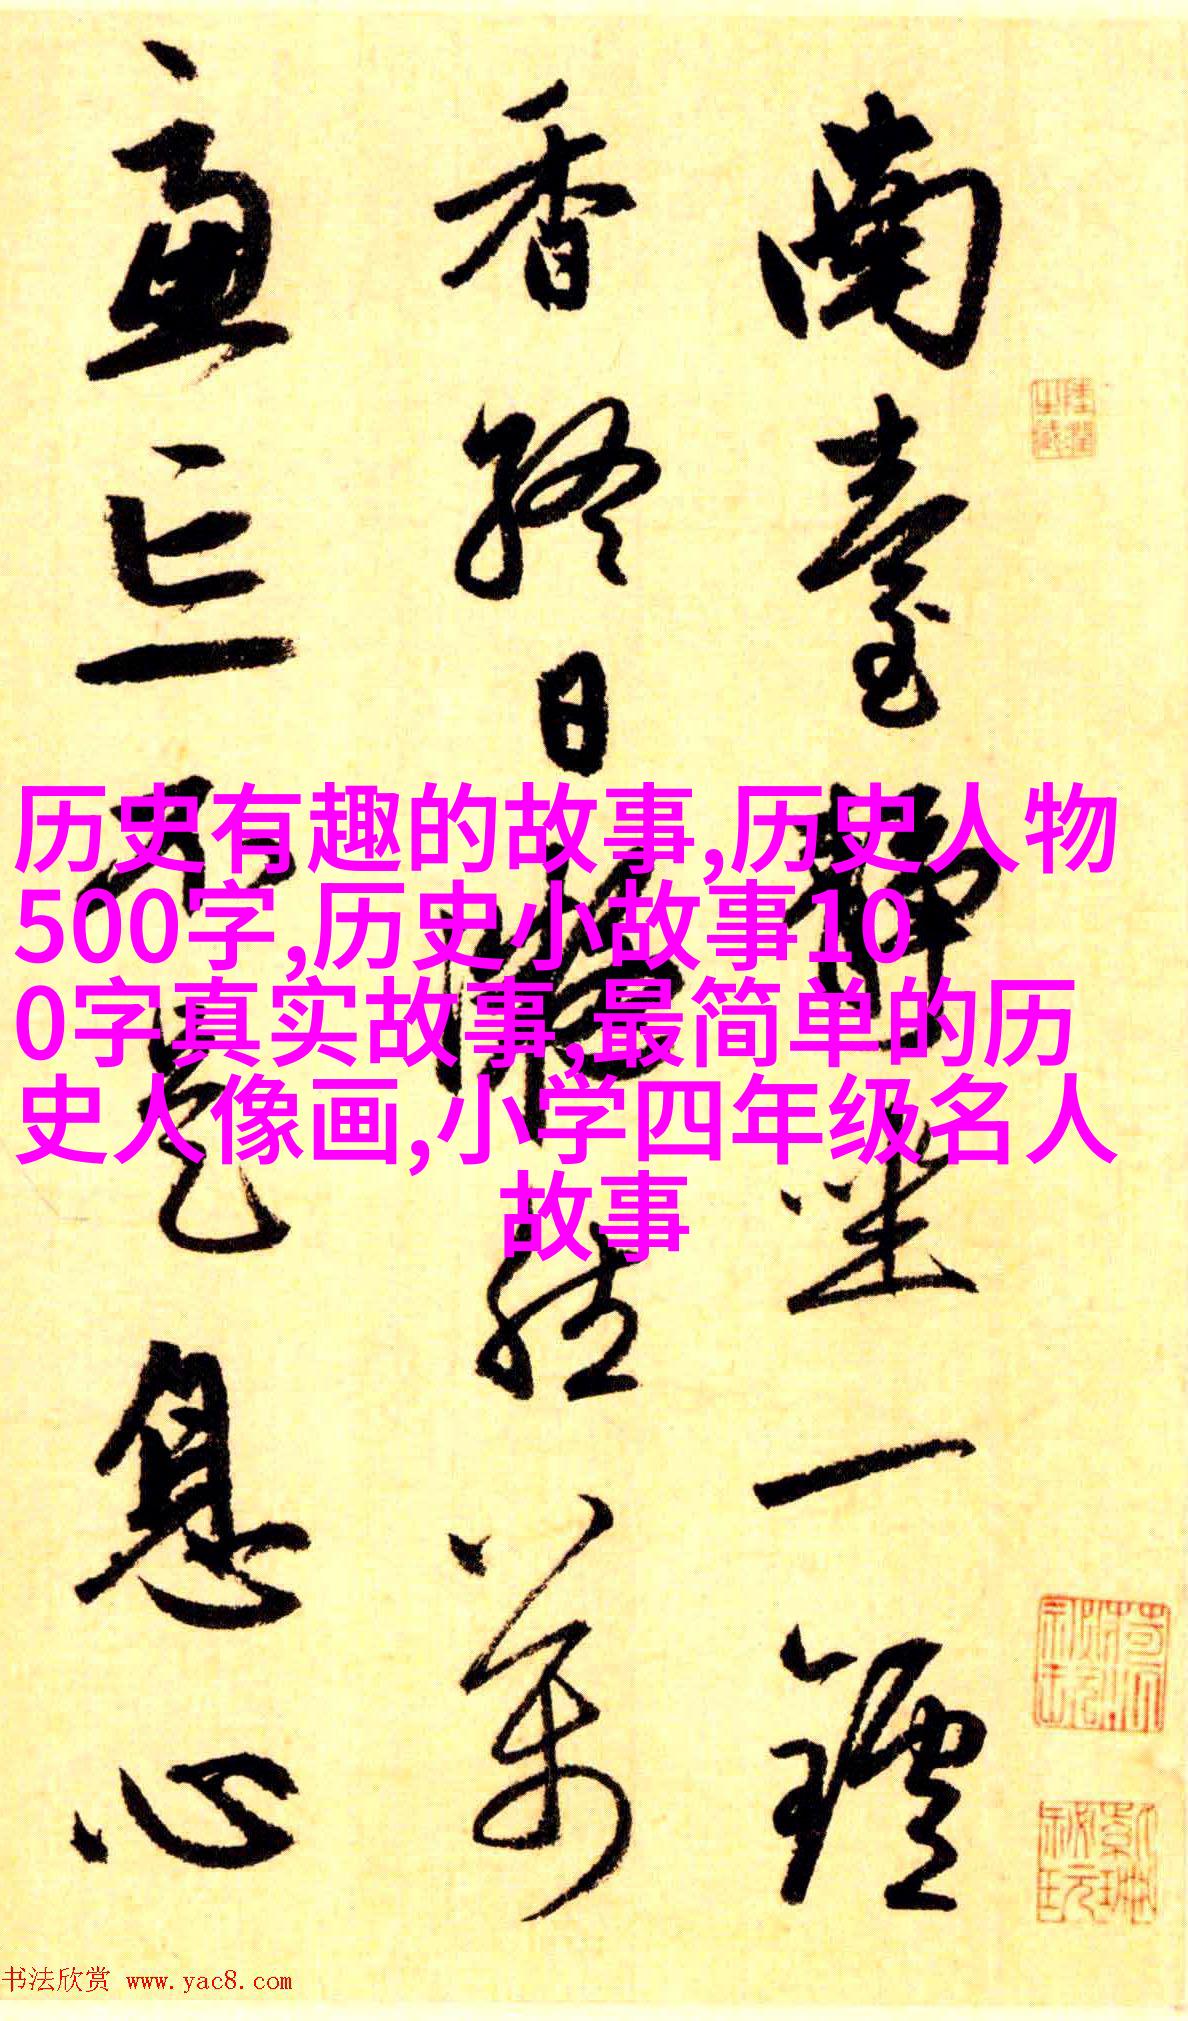 南臺靜坐一鑪
香終日凝然萬
慮忘不是息心
历史有趣的故事,历史人物
500字,历史小故事10
0字真实故事,最简单的历
史人像画,小学四年级名人
故事
书法欣赏 www.yac8.com